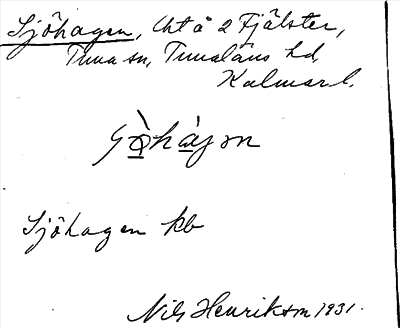 Sjöhagen, lht å 2 Fjälster,
Tuna sn, Tunaläns hd,
Kalmar l.
Sjöhagen kb
Nils Henrikson 1931.